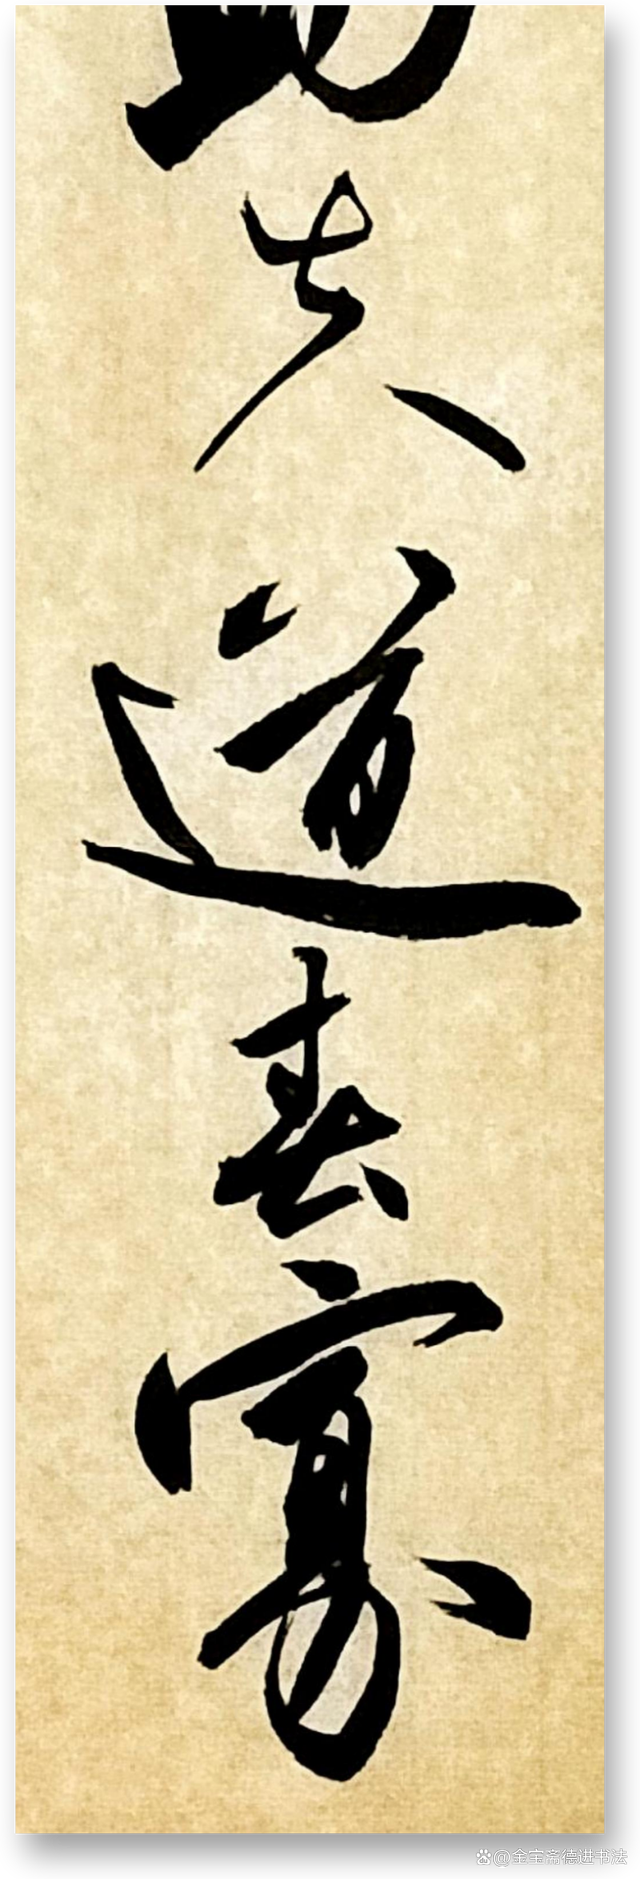 助失道者寡
@全宝斋德进书法